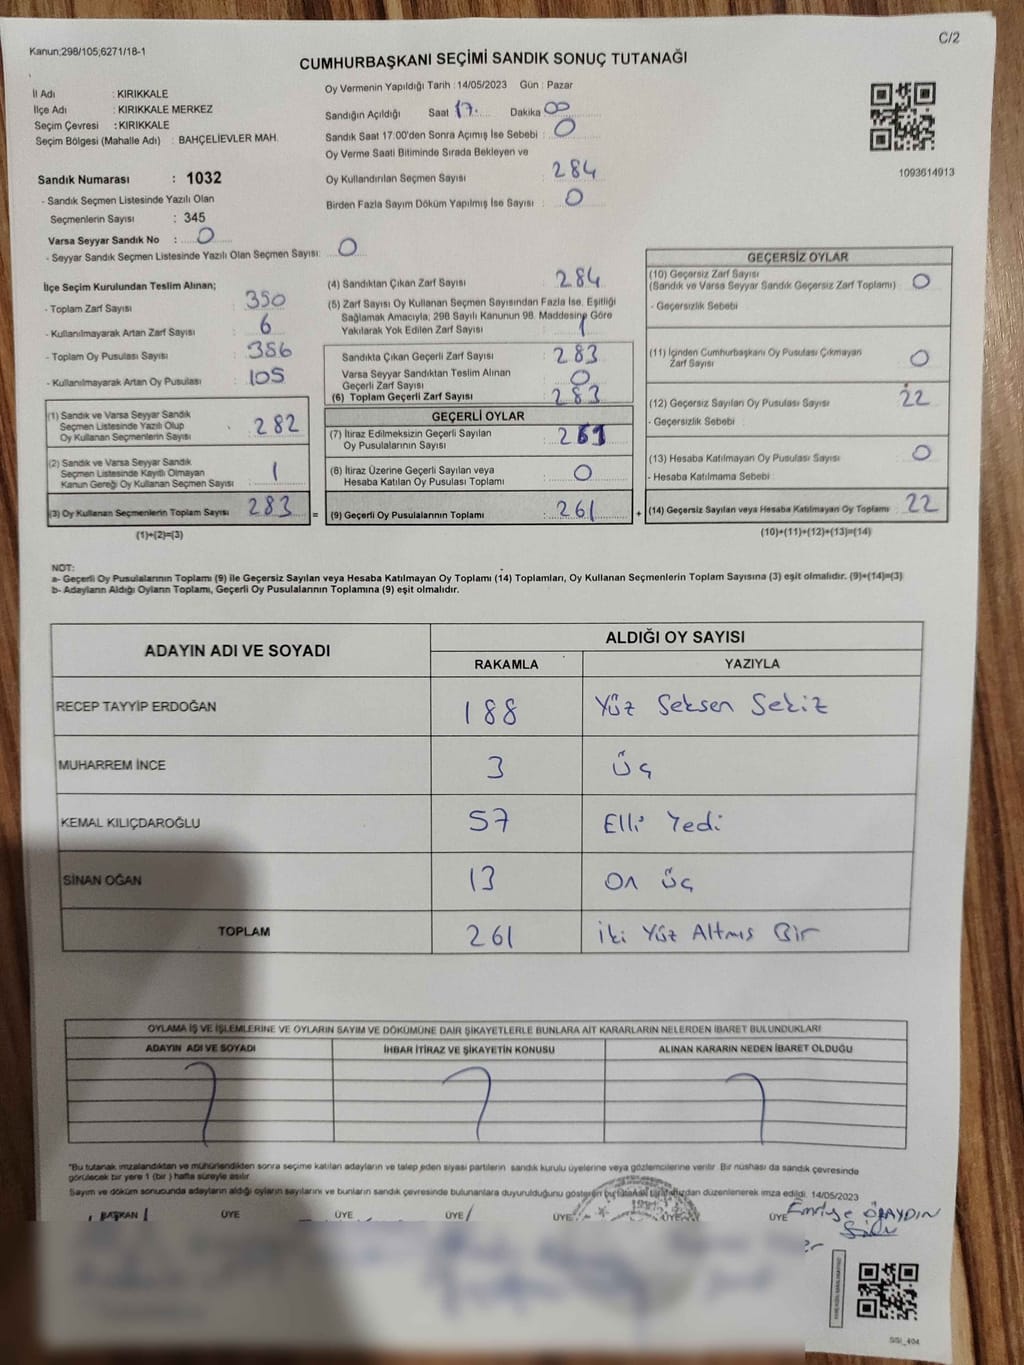 Kanun;298/105,6271/18-1
C/2
CUMHURBAŞKANI SEÇİMİ SANDIK SONUÇ TUTANAĞI
İl Adı : KIRIKKALE
İlçe Adı : KIRIKKALE MERKEZ
Seçim Çevresi : KIRIKKALE
Seçim Bölgesi (Mahalle Adı) : BAHÇELİEVLER MAH.
Sandık Numarası : 1032
- Sandık Seçmen Listesinde Yazılı Olan
Seçmenlerin Sayısı : 345
Varsa Seyyar Sandık No : 0
- Seyyar Sandık Seçmen Listesinde Yazılı Olan Seçmen Sayısı: 0
Oy Vermenin Yapıldığı Tarih : 14/05/2023 Gün : Pazar
Sandığın Açıldığı Saat 17. Dakika 00
Sandık Saat 17:00'den Sonra Açımış İse Sebebi : 0
Oy Verme Saati Bitiminde Sırada Bekleyen ve
Oy Kullandırılan Seçmen Sayısı : 284
Birden Fazla Sayım Döküm Yapılmış İse Sayısı : 0
1093614913
İlçe Seçim Kurulundan Teslim Alınan;
- Toplam Zarf Sayısı : 350
- Kullanılmayarak Artan Zarf Sayısı : 6
- Toplam Oy Pusulası Sayısı : 386
- Kullanılmayarak Artan Oy Pusulası : 105
(1) Sandık ve Varsa Seyyar Sandık
Seçmen Listesinde Yazılı Olup
Oy Kullanan Seçmenlerin Sayısı : 282
(2) Sandık ve Varsa Seyyar Sandık
Seçmen Listesinde Kayıtlı Olmayan
Kanun Gereği Oy Kullanan Seçmen Sayısı : 1
(3) Oy Kullanan Seçmenlerin Toplam Sayısı : 283 =
(1)+(2)=(3)
(4) Sandıktan Çıkan Zarf Sayısı : 284
(5) Zarf Sayısı Oy Kullanan Seçmen Sayısından Fazla İse, Eşitliği
Sağlamak Amacıyla; 298 Sayılı Kanunun 98. Maddesine Göre
Yakılarak Yok Edilen Zarf Sayısı : 1
Sandıkta Çıkan Geçerli Zarf Sayısı : 283
Varsa Seyyar Sandıktan Teslim Alınan
Geçerli Zarf Sayısı : 0
(6) Toplam Geçerli Zarf Sayısı : 283
GEÇERLİ OYLAR
(7) İtiraz Edilmeksizin Geçerli Sayılan
Oy Pusulalarının Sayısı : 261
(8) İtiraz Üzerine Geçerli Sayılan veya
Hesaba Katılan Oy Pusulası Toplamı : 0
(9) Geçerli Oy Pusulalarının Toplamı : 261 +
GEÇERSİZ OYLAR
(10) Geçersiz Zarf Sayısı
(Sandık ve Varsa Seyyar Sandık Geçersiz Zarf Toplamı) : 0
- Geçersizlik Sebebi :
(11) İçinden Cumhurbaşkanı Oy Pusulası Çıkmayan
Zarf Sayısı : 0
(12) Geçersiz Sayılan Oy Pusulası Sayısı : 22
- Geçersizlik Sebebi :
(13) Hesaba Katılmayan Oy Pusulası Sayısı : 0
- Hesaba Katılmama Sebebi :
(14) Geçersiz Sayılan veya Hesaba Katılmayan Oy Toplamı : 22
(10)+(11)+(12)+(13)=(14)
NOT:
a- Geçerli Oy Pusulalarının Toplamı (9) ile Geçersiz Sayılan veya Hesaba Katılmayan Oy Toplamı (14) Toplamları, Oy Kullanan Seçmenlerin Toplam Sayısına (3) eşit olmalıdır. (9)+(14)=(3)
b- Adayların Aldığı Oyların Toplamı, Geçerli Oy Pusulalarının Toplamına (9) eşit olmalıdır.
ADAYIN ADI VE SOYADI ALDIĞI OY SAYISI
RAKAMLA YAZIYLA
RECEP TAYYİP ERDOĞAN 188 Yüz Seksen Sekiz
MUHARREM İNCE 3 Üç
KEMAL KILIÇDAROĞLU 57 Elli Yedi
SİNAN OĞAN 13 On üç
TOPLAM 261 İki Yüz Altmış Bir
OYLAMA İŞ VE İŞLEMLERİNE VE OYLARIN SAYIM VE DÖKÜMÜNE DAİR ŞİKAYETLERLE BUNLARA AİT KARARLARIN NELERDEN İBARET BULUNDUKLARI
ADAYIN ADI VE SOYADI İHBAR İTİRAZ VE ŞİKAYETİN KONUSU ALINAN KARARIN NEDEN İBARET OLDUĞU
"Bu tutanak imzalandıktan ve mühürlendikten sonra seçime katılan adayların ve talep eden siyasi partilerin sandık kurulu üyelerine veya gözlemcilerine verilir. Bir nüshası da sandık çevresinde
görülecek bir yere 1 (bir) hafta süreyle asılır.
Sayım ve döküm sonucunda adayların aldığı oyların sayılarını ve bunların sandık çevresinde bulunanlara duyurulduğunu gösteren bu tutanak tarafımızdan düzenlenerek imza edildi. 14/05/2023
BAŞKAN ÜYE ÜYE ÜYE ÜYE ÜYE ÜYE